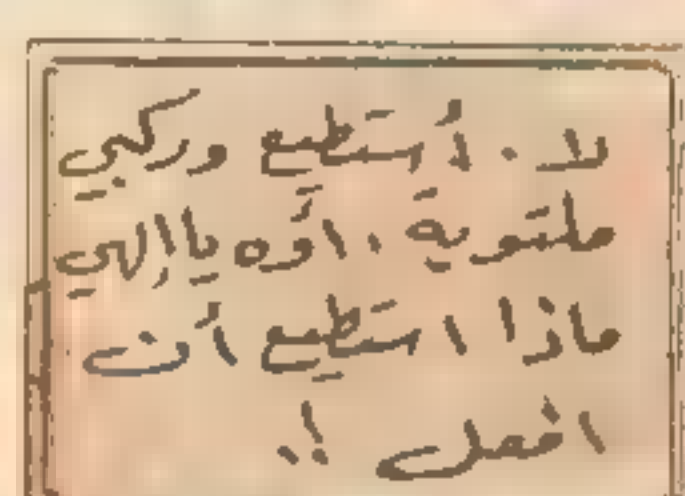 لا . أستطيع وركبي
ملتوية . اوّه يا إلهي
ماذا استطيع أن
افعل !.